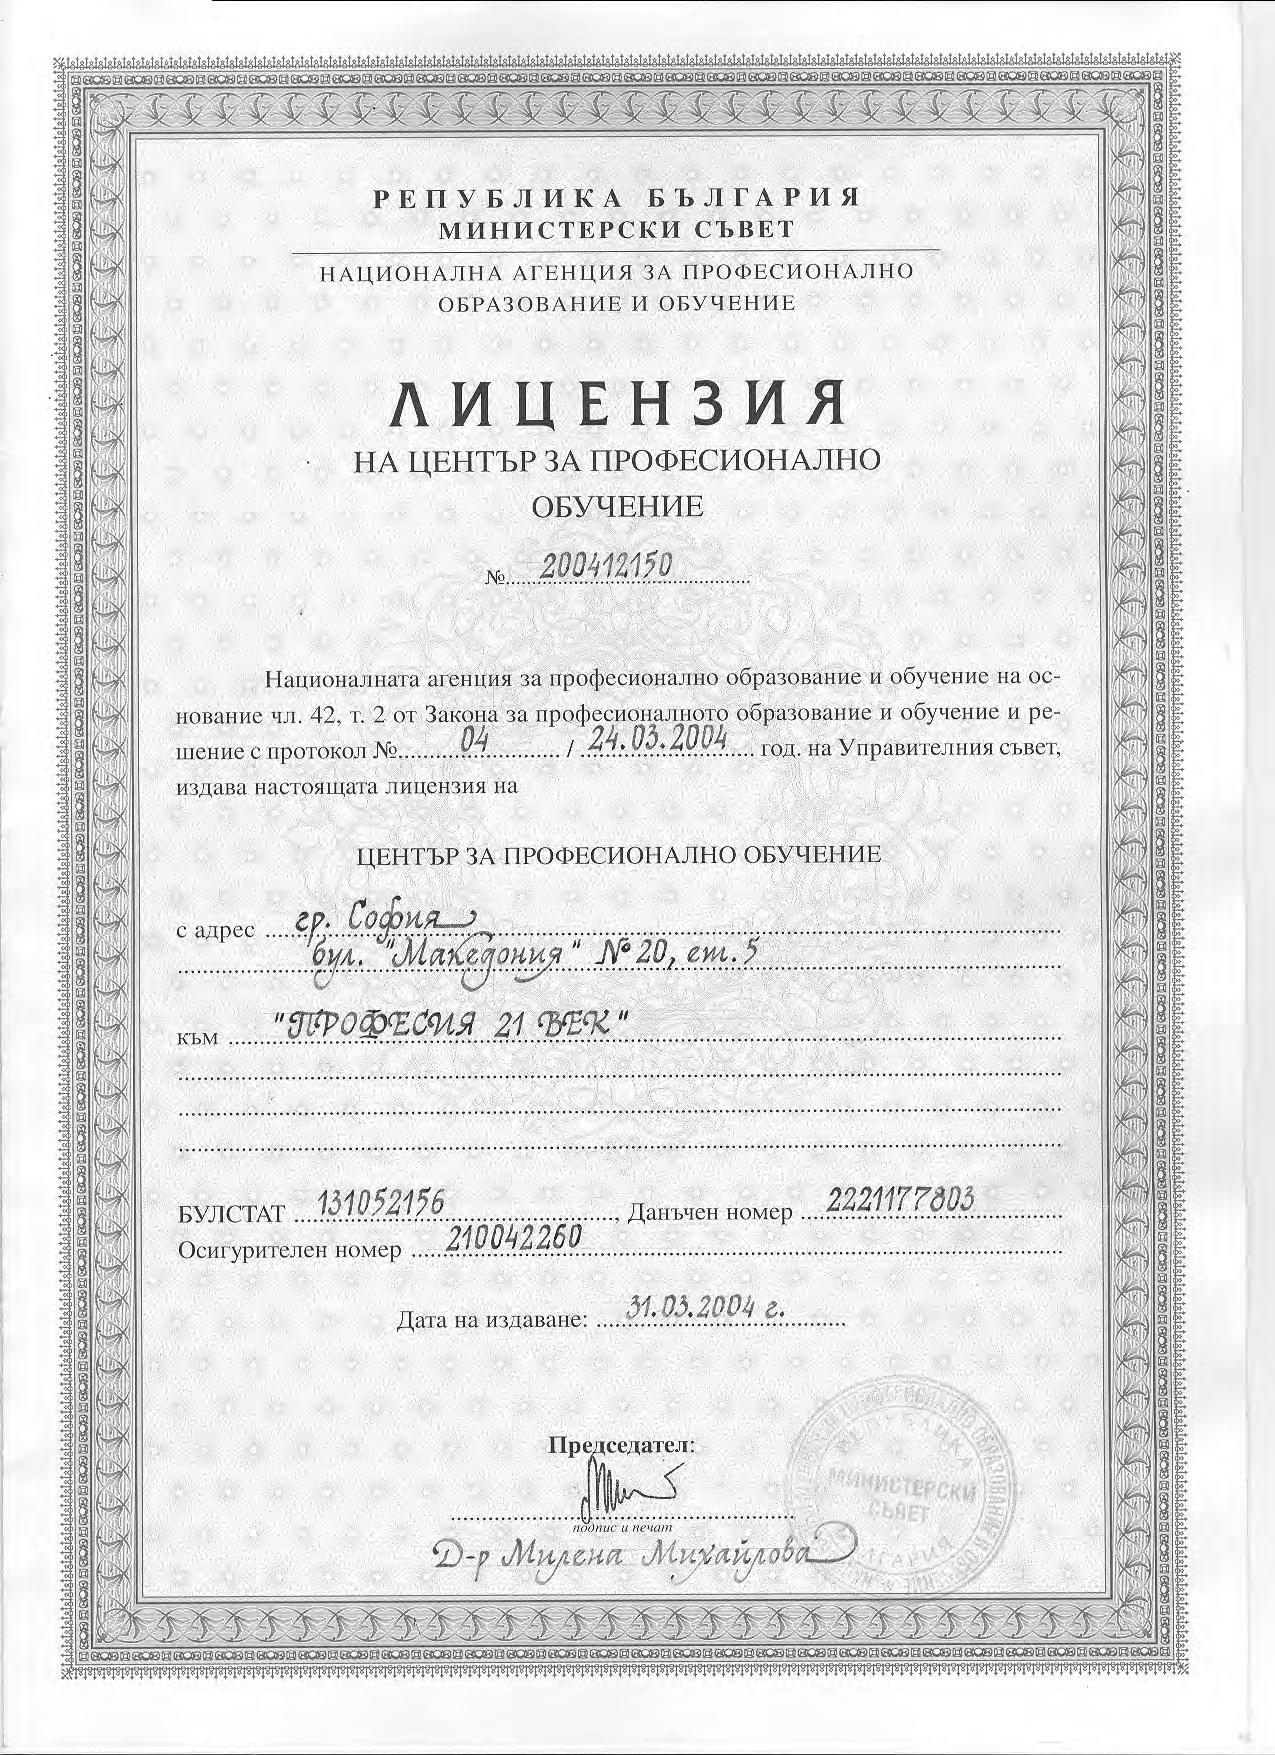 РЕПУБЛИКА БЪЛГАРИЯ
МИНИСТЕРСКИ СЪВЕТ
НАЦИОНАЛНА АГЕНЦИЯ ЗА ПРОФЕСИОНАЛНО
ОБРАЗОВАНИЕ И ОБУЧЕНИЕ
ЛИЦЕНЗИЯ
НА ЦЕНТЪР ЗА ПРОФЕСИОНАЛНО
ОБУЧЕНИЕ
№ 200412150
Националната агенция за професионално образование и обучение на ос-
нование чл. 42, т. 2 от Закона за професионалното образование и обучение и ре-
шение с протокол № 04 / 24.03.2004 год. на Управителния съвет,
издава настоящата лицензия на
ЦЕНТЪР ЗА ПРОФЕСИОНАЛНО ОБУЧЕНИЕ
с адрес гр. София
бул. "Македония" №20, ет. 5
към "ПРОФЕСИЯ 21 ВЕК"
БУЛСТАТ 131052156, Данъчен номер 2221177803
Осигурителен номер 210042260
Дата на издаване: 31.03.2004 г.
Председател:
подпис и печат
Д-р Милена Михайлова
МИНИСТЕРСКИ
СЪВЕТ